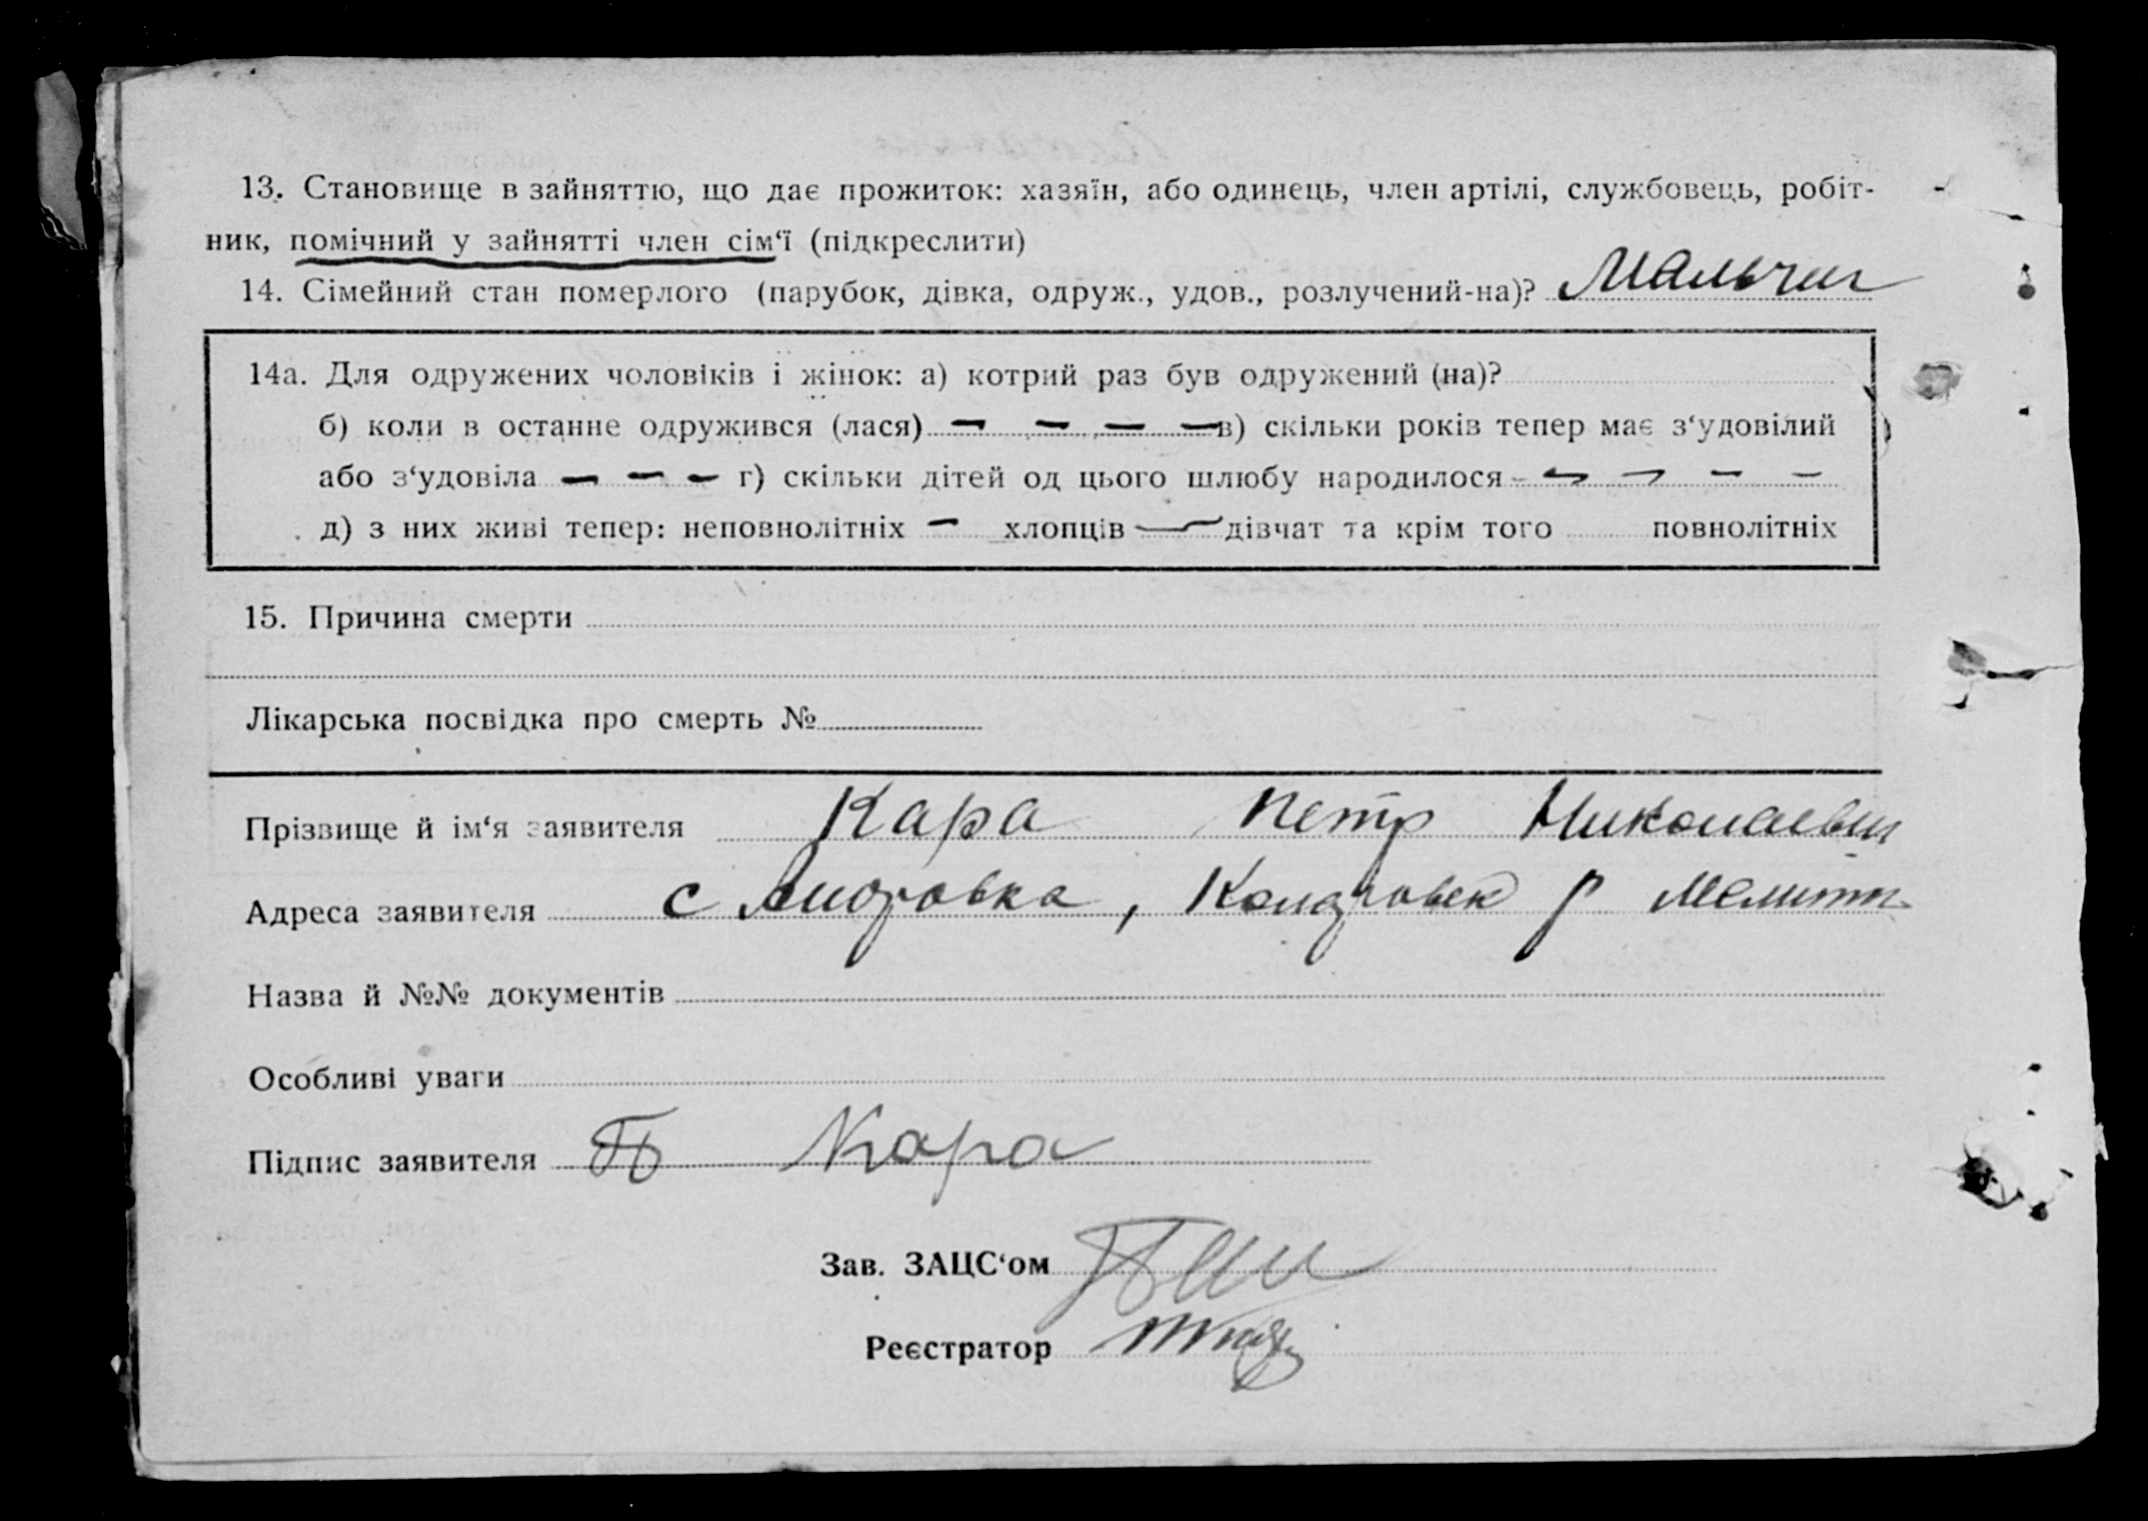 13. Становище в зайняттю, що дає прожиток: хазяїн, або одинець, член артілі, службовець, робіт-
ник, помічний у зайнятті член сім‘ї (підкреслити)
14. Сімейний стан померлого (парубок, дівка, одруж., удов., розлучений-на)? Мальчик
14а. Для одружених чоловіків і жінок: а) котрий раз був одружений (на)?
б) коли в останне одружився (лася) — — — — в) скільки років тепер має з‘удовілий
або з‘удовіла — — — г) скільки дітей од цього шлюбу народилося — — — —
д) з них живі тепер: неповнолітніх — хлопців — дівчат та крім того повнолітніх
15. Причина смерти
Лікарська посвідка про смерть №
Прізвище й ім‘я заявителя Кара Петр Николаевич
Адреса заявителя с , р Мелитп.
Назва й №№ документів
Особливі уваги
Підпис заявителя П Кара
Зав. ЗАЦС‘ом
Реєстратор